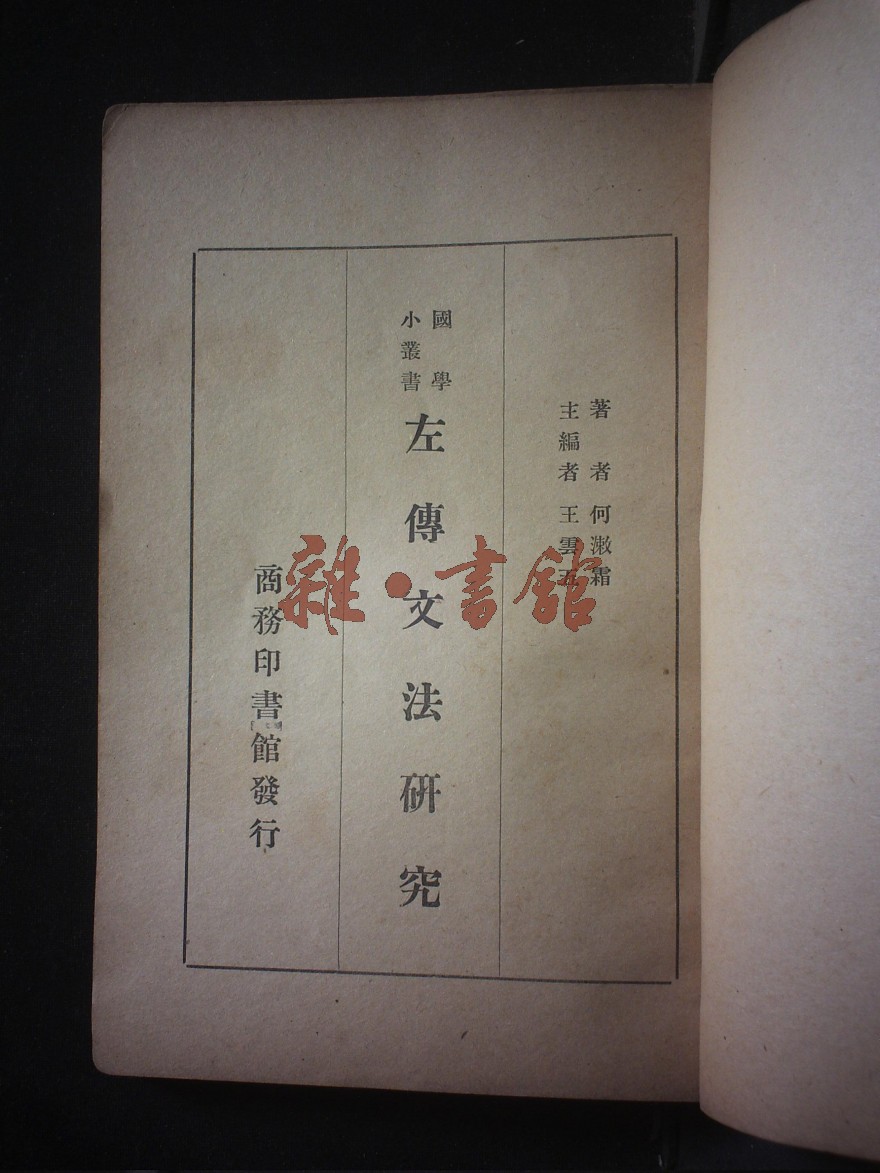 著者 何漱霜
主編者 王雲五
國學
小叢書
左傳文法研究
商務印書館發行
雜·書館